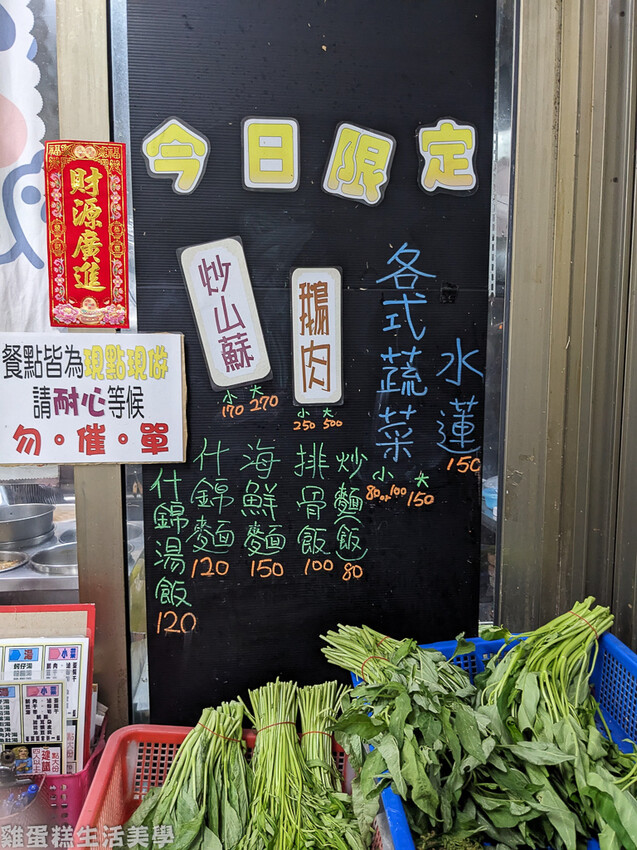 今日限定
財源廣進
餐點皆為現點現做
請耐心等候
勿。催。單
炒山蘇
小 大
170 270
鵝肉
小 大
250 500
各式蔬菜
小 大
80or100 150
水蓮
150
什錦湯飯
120
什錦麵
120
海鮮麵
150
排骨飯
100
炒麵飯
80
雞蛋糕生活美學